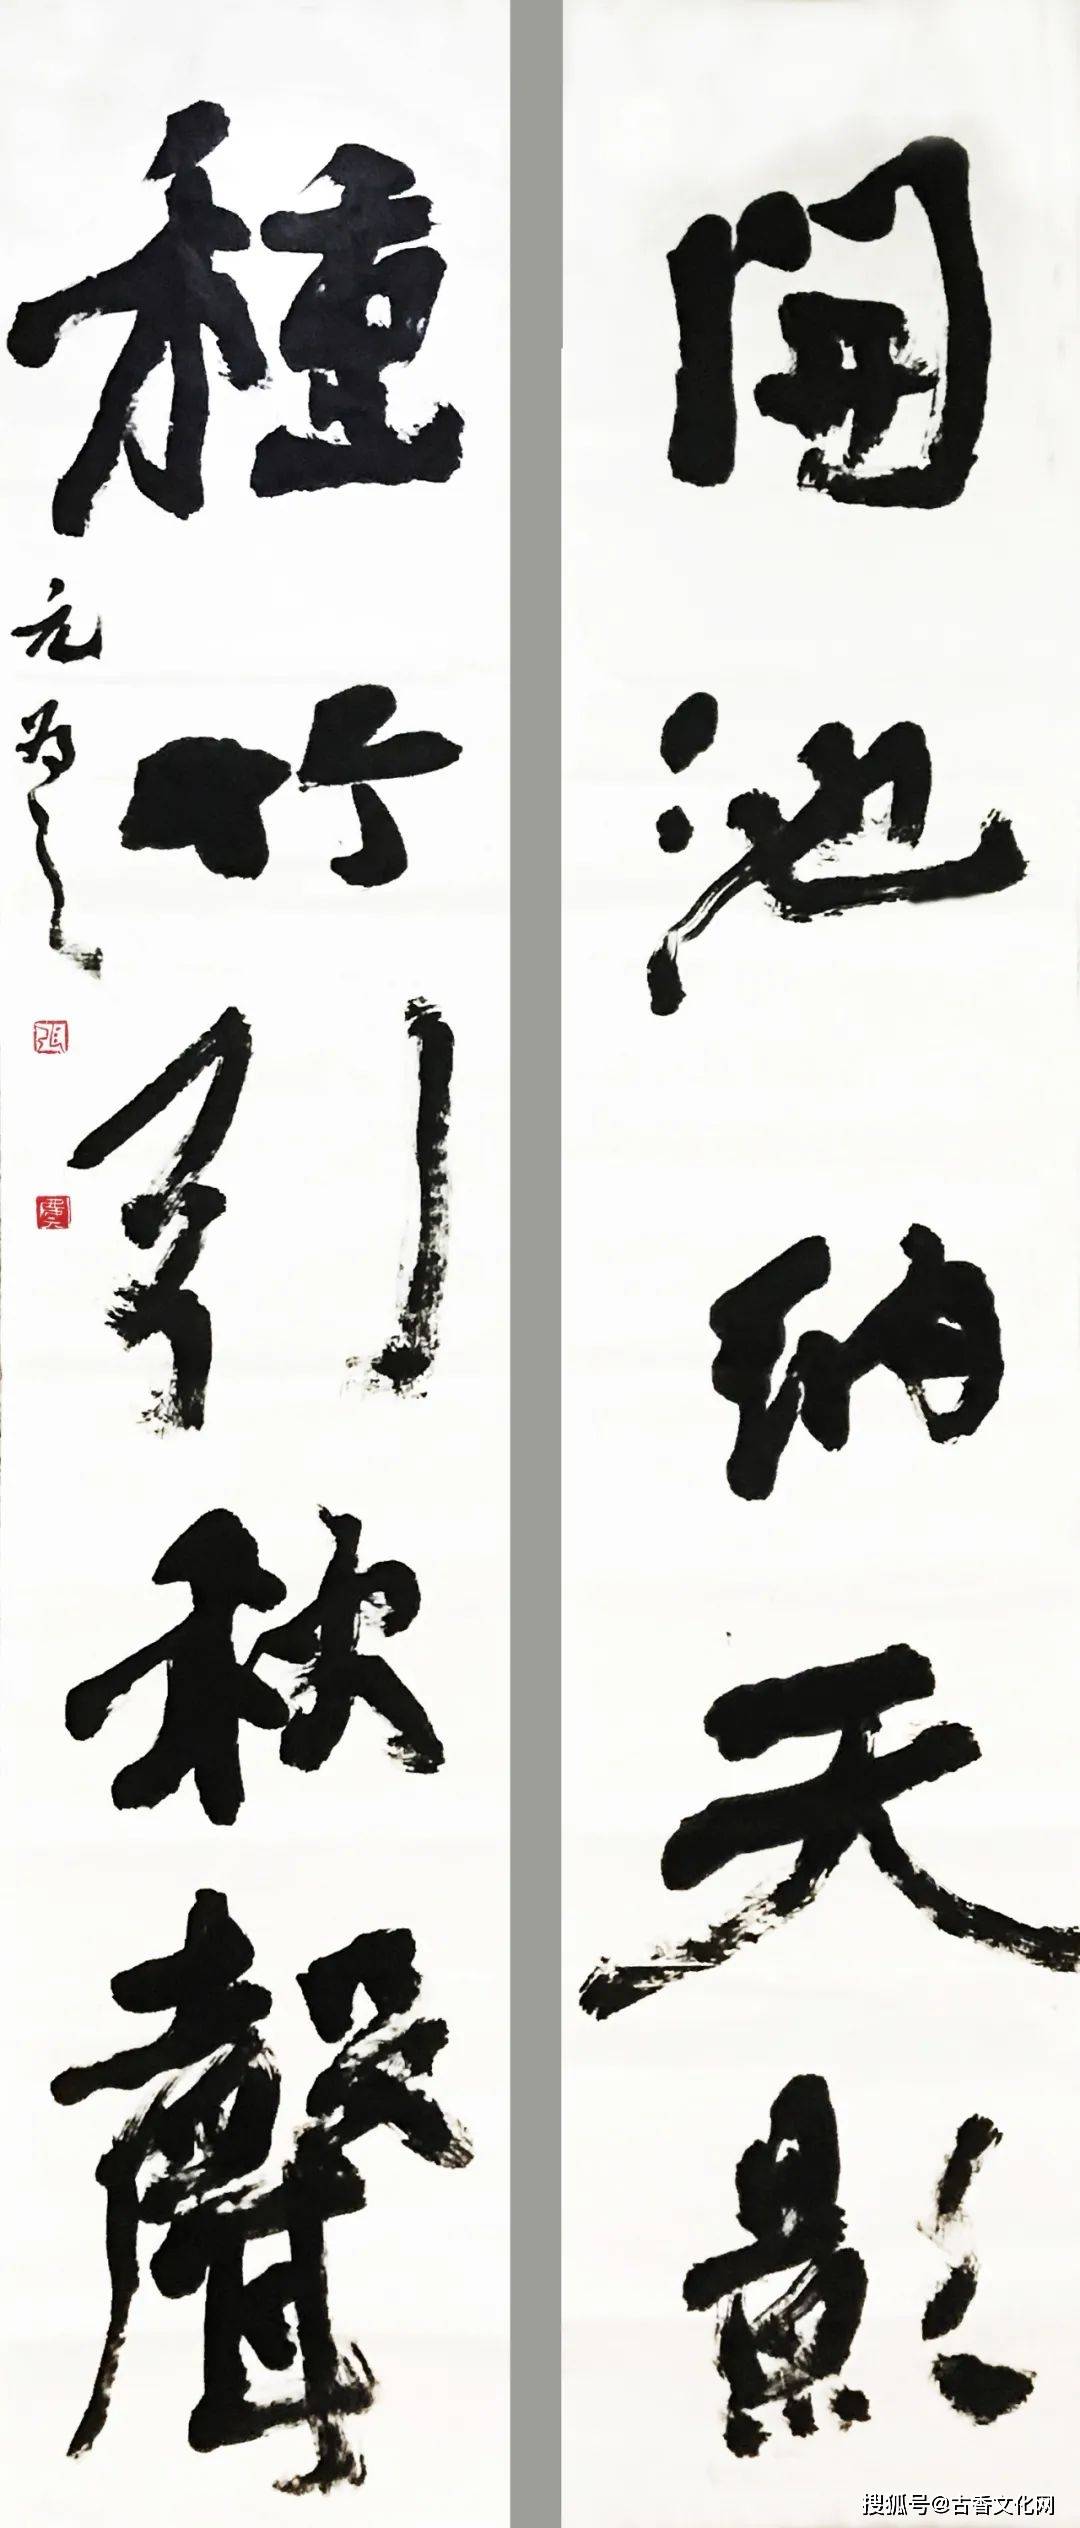 開池納天影
種竹引秋聲
元
張
搜狐号@古香文化网